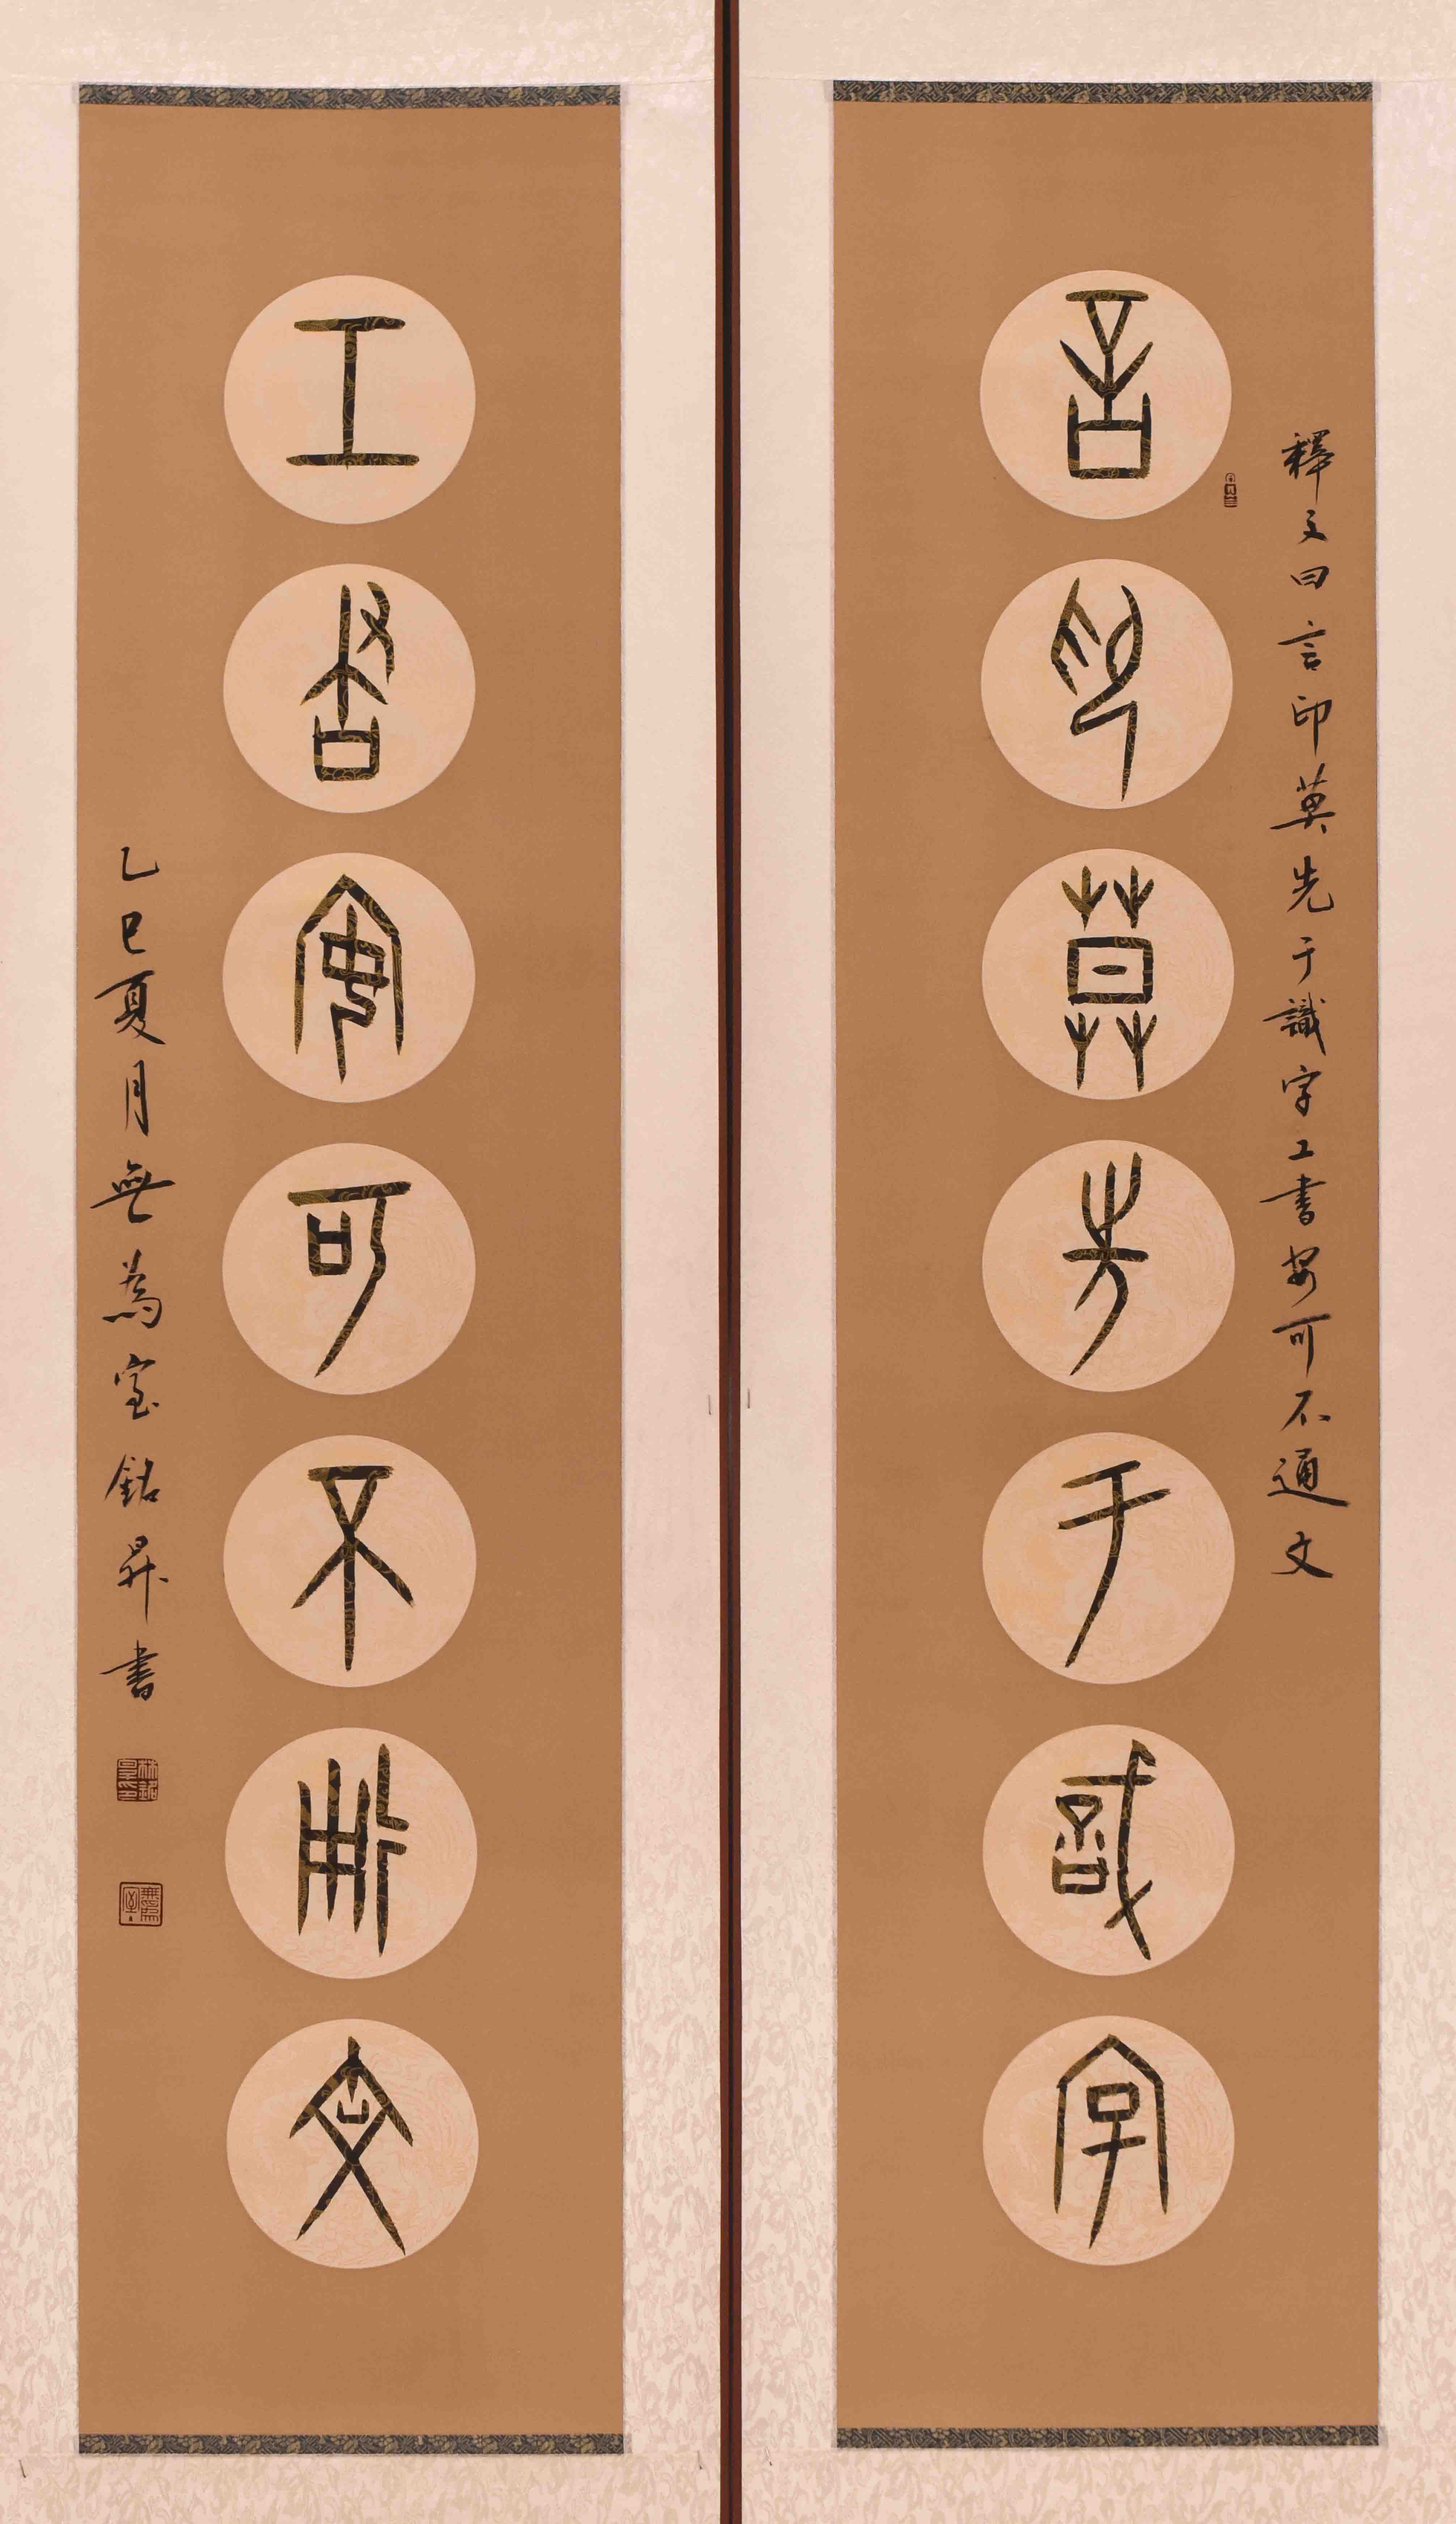 言印莫先于識字
釋文曰言印莫先于識字工書安可不通文
工書安可不通文
乙巳夏月無為室銘昇書